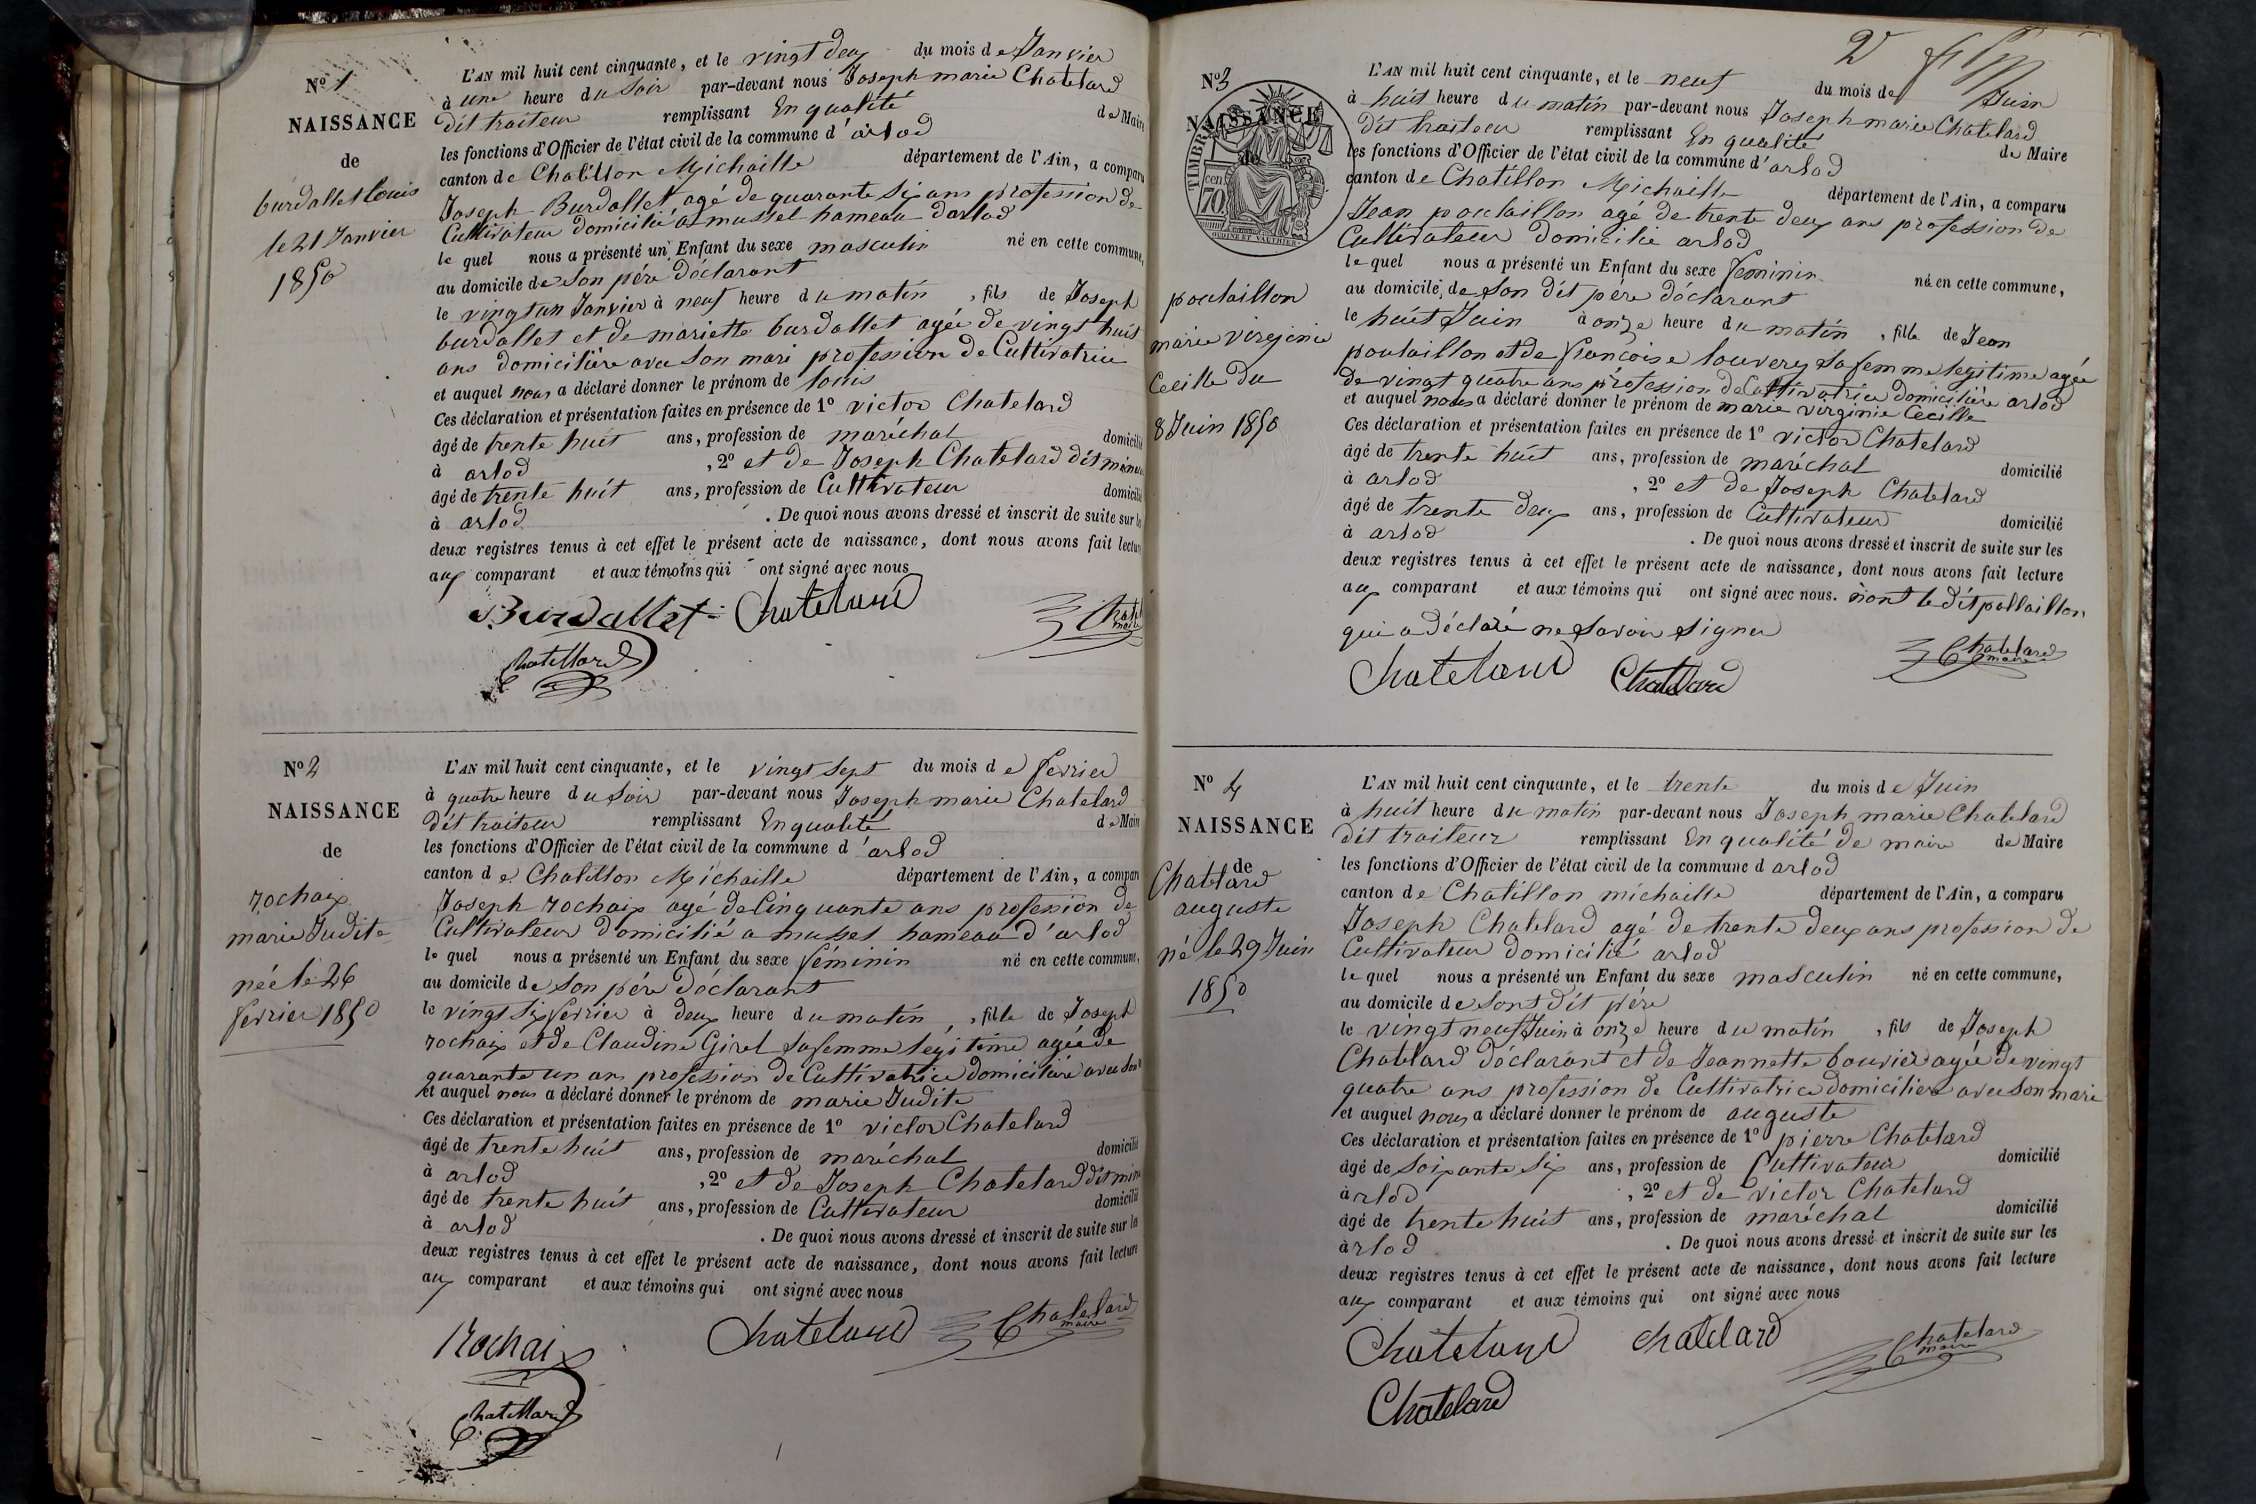 Nº 1
NAISSANCE
de
burdallet Louis
le 21 Janvier
1850
L'AN mil huit cent cinquante, et le vingt deux du mois de Janvier
à une heure du Soir par-devant nous Joseph marie Chatelard
dit traiteur remplissant En qualité de Maire
les fonctions d'Officier de l'état civil de la commune d'arlod
canton de Chatillon Michaille département de l'Ain, a comparu
Joseph Burdallet agé de quarante six ans profession de
Cultivateur domicilié a mussel hameau darlod
le quel nous a présenté un Enfant du sexe masculin né en cette commune,
au domicile de Son pére déclarant
le vingt un Janvier à neuf heure du matin, fils de Joseph
burdallet et de mariette burdallet agée de vingt huit
ans domicilière avec Son mari profession de Cultivatrice
et auquel nous a déclaré donner le prénom de louis
Ces déclaration et présentation faites en présence de 1º victor Chatelard
âgé de trente huit ans, profession de maréchal domicilié
à arlod, 2º et de Joseph Chatelard dit
âgé de trente huit ans, profession de Cultivateur domicilié
à arlod. De quoi nous avons dressé et inscrit de suite sur les
deux registres tenus à cet effet le présent acte de naissance, dont nous avons fait lecture
aux comparant et aux témoins qui ont signé avec nous
Burdallet Chatelard
Chatelard
maire
Chatellard
Nº 2
NAISSANCE
de
rochaix
marie Judite
née le 26
fevrier 1850
L'AN mil huit cent cinquante, et le vingt sept du mois de fevrier
à quatre heure du Soir par-devant nous Joseph marie Chatelard
dit traiteur remplissant En qualité de Maire
les fonctions d'Officier de l'état civil de la commune d'arlod
canton de Chatillon Michaille département de l'Ain, a comparu
Joseph rochaix agé de Cinquante ans profession de
Cultivateur domicilié a mussel hameau d'arlod
le quel nous a présenté un Enfant du sexe féminin né en cette commune,
au domicile de Son pére déclarant
le vingt six fevrier à deux heure du matin, fille de Joseph
rochaix et de Claudine Girel Sa femme legitime agée de
quarante un ans profession de Cultivatrice domicilière avec Son
et auquel nous a déclaré donner le prénom de marie Judite
Ces déclaration et présentation faites en présence de 1º victor Chatelard
âgé de trente huit ans, profession de maréchal domicilié
à arlod, 2º et de Joseph Chatelard dit
âgé de trente huit ans, profession de Cultivateur domicilié
à arlod. De quoi nous avons dressé et inscrit de suite sur les
deux registres tenus à cet effet le présent acte de naissance, dont nous avons fait lecture
aux comparant et aux témoins qui ont signé avec nous
Rochaix Chatelard Chatelard
maire
Chatellard
2e
Nº 3
NAISSANCE
de
TIMBRE
70 cen
poulaillon
marie virejinie
Cecille du
8 Juin 1850
L'AN mil huit cent cinquante, et le neuf du mois de Juin
à huit heure du matin par-devant nous Joseph marie Chatelard
dit traiteur remplissant En qualité de Maire
les fonctions d'Officier de l'état civil de la commune d'arlod
canton de Chatillon Michaille département de l'Ain, a comparu
Jean poulaillon agé de trente deux ans profession de
Cultivateur domicilié arlod
le quel nous a présenté un Enfant du sexe feminin né en cette commune,
au domicile de Son dit pére déclarant
le huit Juin à onze heure du matin, fille de Jean
poulaillon et de francoise louvery Sa femme legitime agée
de vingt quatre ans profession de Cultivatrice domicilière arlod
et auquel nous a déclaré donner le prénom de marie virginie Cecille
Ces déclaration et présentation faites en présence de 1º victor Chatelard
âgé de trente huit ans, profession de maréchal domicilié
à arlod, 2º et de Joseph Chatelard
âgé de trente deux ans, profession de Cultivateur domicilié
à arlod. De quoi nous avons dressé et inscrit de suite sur les
deux registres tenus à cet effet le présent acte de naissance, dont nous avons fait lecture
aux comparant et aux témoins qui ont signé avec nous. nont le dit pollaillon
qui a déclaré ne Savoir Signer
Chatelard Chatelard Chatelard
maire
Nº 4
NAISSANCE
de
Chatelard
auguste
né le 29 Juin
1850
L'AN mil huit cent cinquante, et le trente du mois de Juin
à huit heure du matin par-devant nous Joseph marie Chatelard
dit traiteur remplissant En qualité de maire de Maire
les fonctions d'Officier de l'état civil de la commune d arlod
canton de Chatillon michaille département de l'Ain, a comparu
Joseph Chatelard agé de trente deux ans profession de
Cultivateur domicilié arlod
le quel nous a présenté un Enfant du sexe masculin né en cette commune,
au domicile de Sont dit pére
le vingt neuf Juin à onze heure du matin, fils de Joseph
Chatelard déclarant et de Jeannette bouvier agée de vingt
quatre ans profession de Cultivatrice domiciliere avec Son mari
et auquel nous a déclaré donner le prénom de auguste
Ces déclaration et présentation faites en présence de 1º pierre Chatelard
âgé de Soixante Six ans, profession de Cultivateur domicilié
à rlod, 2º et de victor Chatelard
âgé de trente huit ans, profession de maréchal domicilié
à rlod. De quoi nous avons dressé et inscrit de suite sur les
deux registres tenus à cet effet le présent acte de naissance, dont nous avons fait lecture
aux comparant et aux témoins qui ont signé avec nous
Chatelard chatelard Chatelard
maire
Chatelard